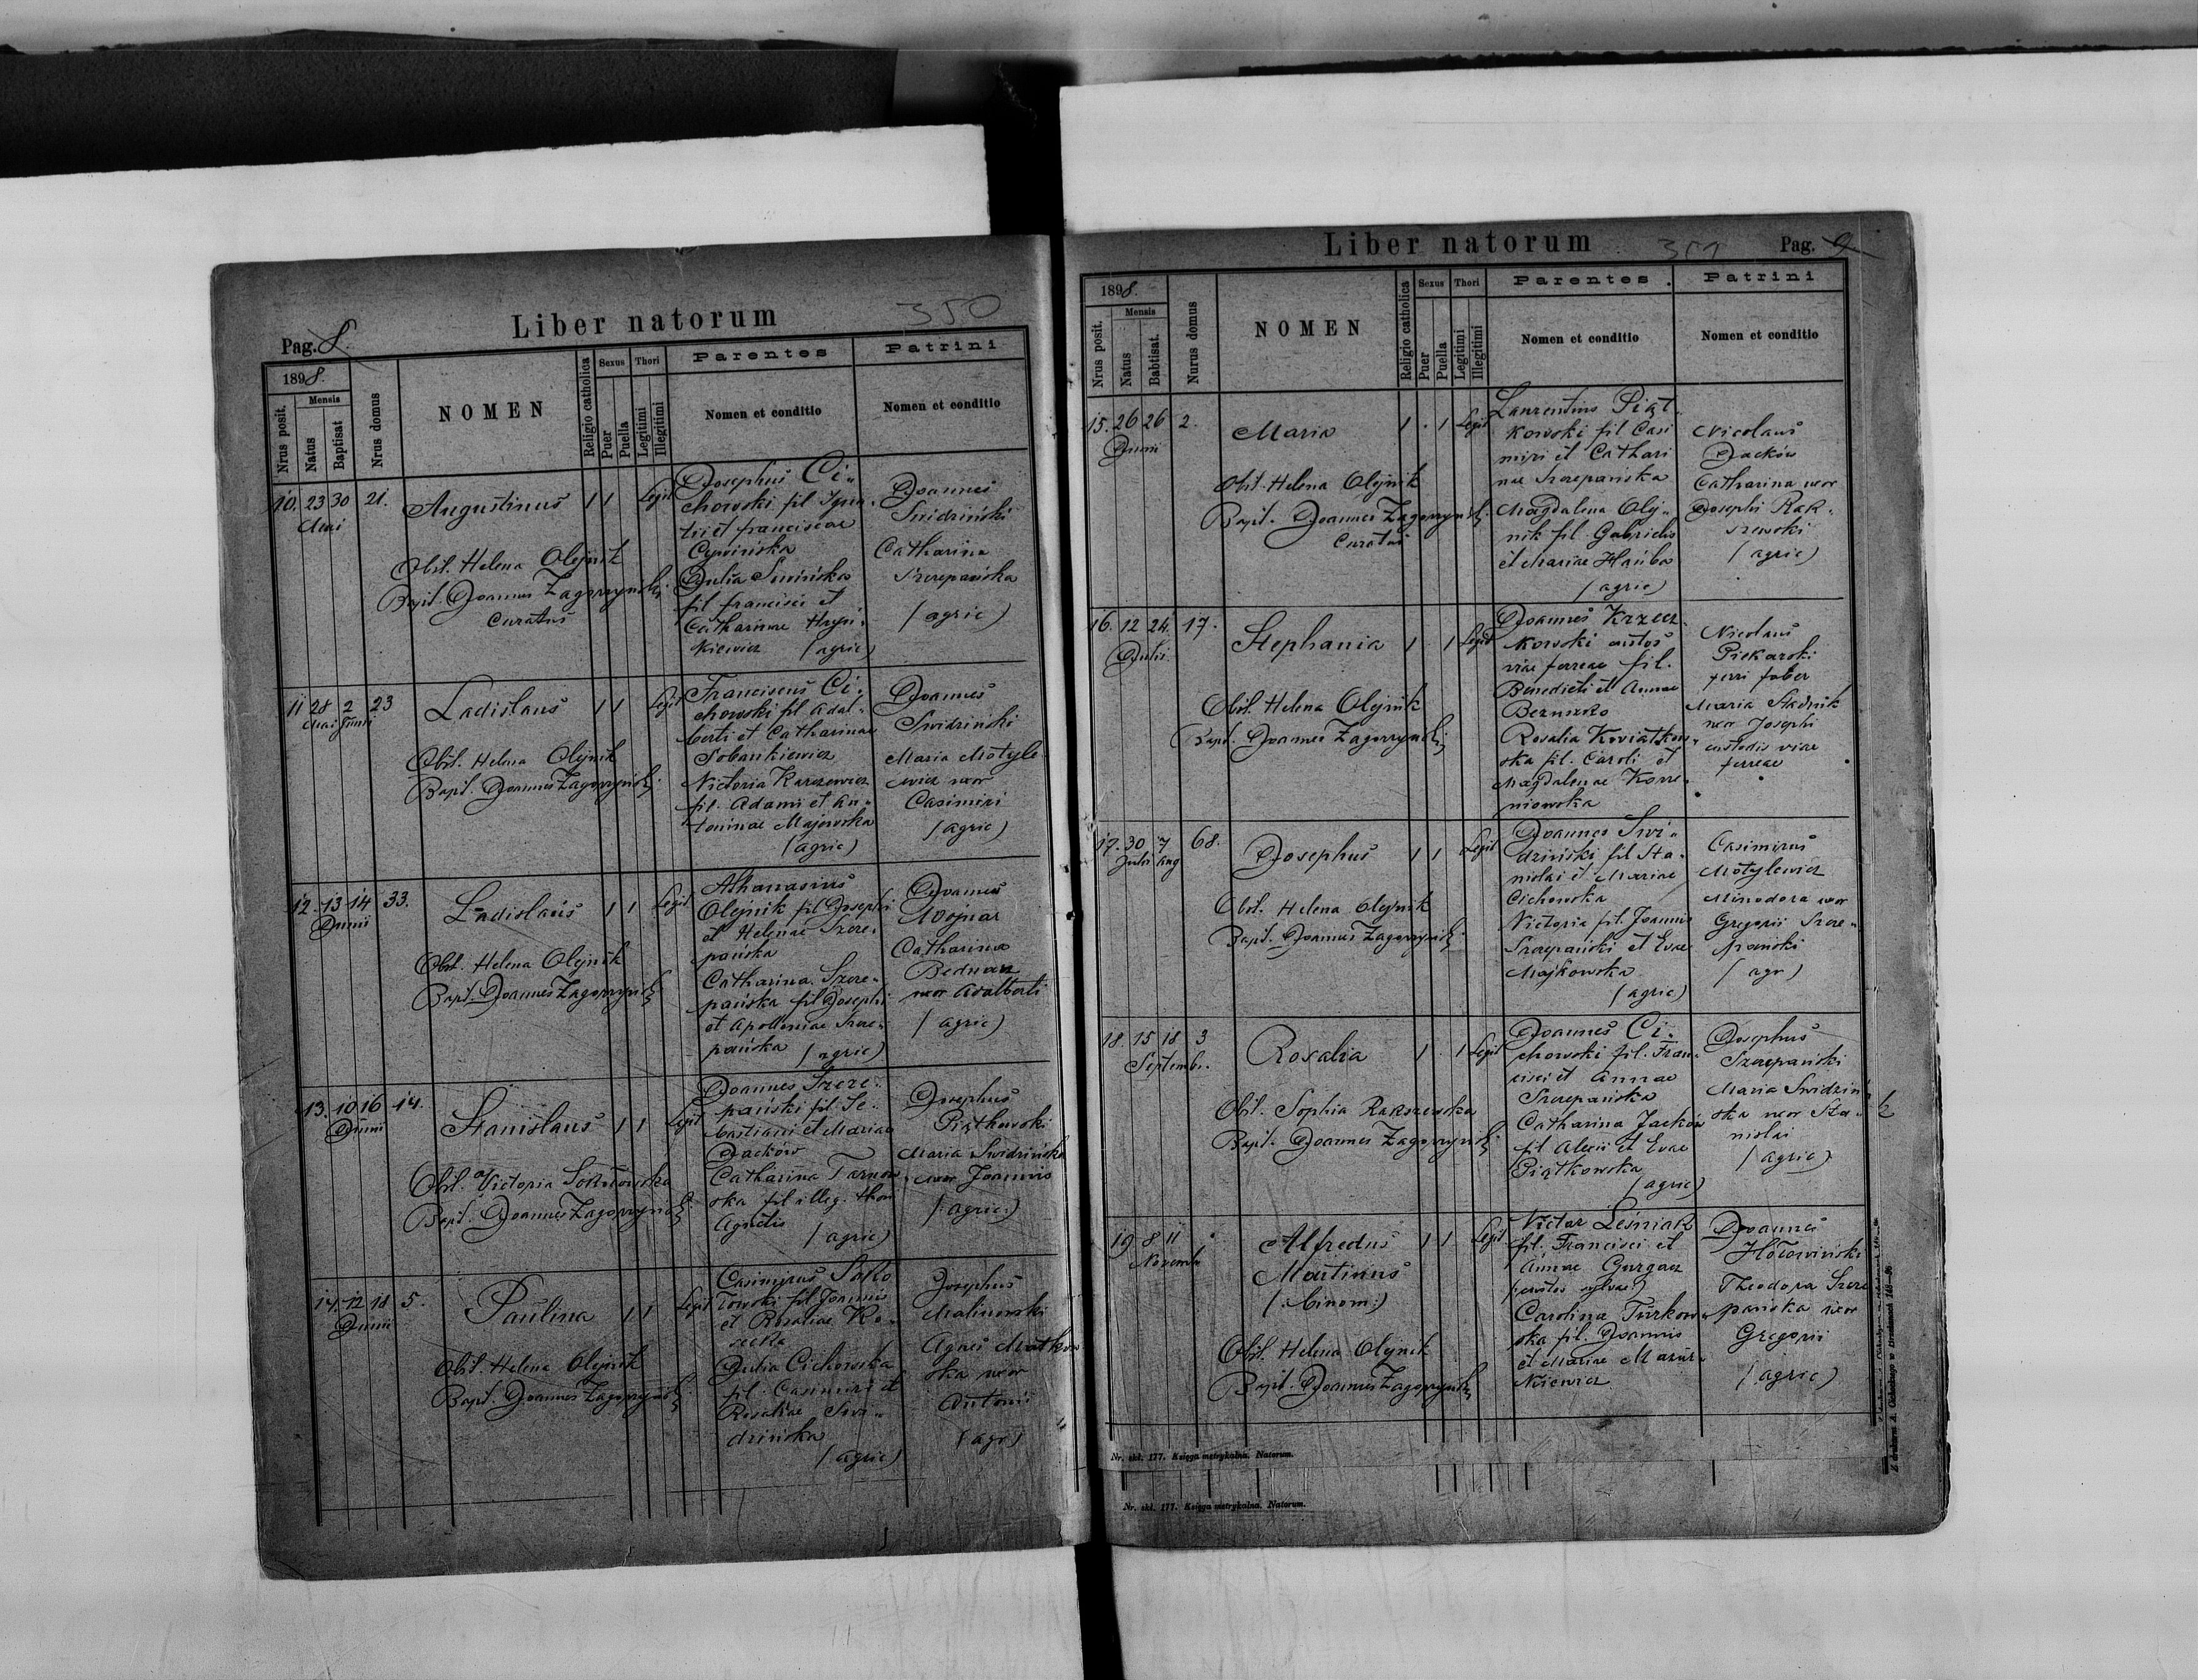 Pag. 8.
Liber natorum
350
1898.
Mensis
Nrus posit.
Natus
Baptisat
Nrus domus
NOMEN
Religio catholica
Sexus
Puer
Puella
Thori
Legitimi
Illegitimi
Parentes
Nomen et conditio
Patrini
Nomen et conditio
10. 23 30 21. Augustinus 1 1 Legit
Mai
Obst. Helena Olejnik
Bapt. Joannes Zagorzynski
Curatus
Josephus Ci-
chowski fil Igna-
tii et franciscae
Julia Swińska
fil francisci et
Catharinae Hryn-
kiewicz (agric)
Joannes
Swidziński
Catharina
Szczepańska
(agric)
11 28 2 23 Ladislaus 1 1 Legit
Mai Junii
Obst. Helena Olejnik
Bapt. Joannes Zagorzynski
Franciscus Ci-
chowski fil Adal-
berti et Catharinae
Sobankiewicz
Victoria Karczewicz
fil. Adami et An-
toninae Majewska
(agric)
Joannes
Swidzinski
Maria Motyle-
wicz uxor
Casimiri
(agric)
12. 13 14 33. Ladislaus 1 1 Legit
Junii
Obst. Helena Olejnik
Bapt. Joannes Zagorzynski
Athanasius
Olejnik fil Josephi
et Helenae Szcze-
pańska
Catharina Szcze-
pańska fil Josephi
et Apolloniae Szcze-
pańska (agric)
Joannes
Wojnar
Catharina
Bednarz
uxor Adalberti
(agric)
13. 10 16 14. Stanislaus 1 1 Legit
Junii
Obst. Victoria Sokołowska
Bapt. Joannes Zagorzynski
Joannes Szcze-
pański fil. Se-
bastiani et Mariae
Jacków
Catharina Tarnow-
ska fil illeg. thori
Agnetis
(agric)
Josephus
Piątkowski
Maria Swidzińska
uxor Joannis
(agric.)
14. 12 18 5. Paulina 1 1 Legit
Junii
Obst. Helena Olejnik
Bapt. Joannes Zagorzynski
Casimirus Soko-
łowski fil Joannis
et Rosaliae
Julia Cichowska
fil. Casimiri et
Rosaliae Swi-
dzińska
(agric)
Josephus
Malinowski
Agnes
ska uxor
Antonii
(agr)
Liber natorum
Pag. 9
1898.
Mensis
Nrus posit.
Natus
Babtisat.
Nurus domus
NOMEN
Religio catholica
Sexus
Puer
Puella
Thori
Legitimi
Illegitimi
Parentes
Nomen et conditio
Patrini
Nomen et conditio
15. 26 26 2. Maria 1 . 1 Legit
Junii
Obst. Helena Olejnik
Bapt. Joannes Zagorzynski
Curatus
Laurentius Piąt-
kowski fil Casi
miri et Cathari
nae Szczepańska
Magdalena Olej-
nik fil. Gabrielis
et Mariae Hańba
(agric)
Nicolaus
Jacków
Catharina uxor
Josephi Rak-
szewski
(agric)
16. 12 24 17. Stephania 1 1 Legit
Julii
Obst. Helena Olejnik
Bapt. Joannes Zagorzynski
Joannes Krzecz-
kowski custos
viae ferreae fil.
Benedicti et Annae
Rosalia Kwiatkow-
ska fil. Caroli et
Magdalenae Korze-
niowska
Nicolaus
Piekarski
ferri faber
Maria Stadnik
uxor Josephi
custodis viae
ferreae
17. 30 7 68. Josephus 1 1 Legit
Julii Aug
Obst. Helena Olejnik
Bapt. Joannes Zagorzynski
Joannes Swi-
dziński fil Sta-
nislai et Mariae
Cichowska
Victoria fil. Joannis
Szczepański et Evae
Majkowska
(agric)
Casimirus
Motylewicz
Minodora uxor
Gregorii Szcze-
pański
(agr)
18. 15 18 3 Rosalia 1 . 1 Legit
Septembr.
Obst. Sophia Rakszewska
Bapt. Joannes Zagorzynski
Joannes Ci-
chowski fil. Fran-
cisci et Annae
Szczepańska
Catharina Jacków
fil Alexii et Evae
Piątkowska
(agric)
Josephus
Szczepański
Maria Swidziń
ska uxor Sta-
nislai
(agric)
19 8 11 Alfredus 1 1 Legit
Novemb
Martinus
(binom:)
Obst. Helena Olejnik
Bapt. Joannes Zagorzynski
Victor Leśniak
fil. Francisci et
Annae Gurgacz
(custos sylvae)
Carolina Turkow-
ska fil. Joannis
et Mariae Mazur-
kiewicz
Joannes
Hołowiński
Theodora Szcze
pańska uxor
Gregorii
(agric)
Nr. skł. 177. Księga metrykalna. Natorum.
Nr. skł. 177. Księga metrykalna. Natorum.